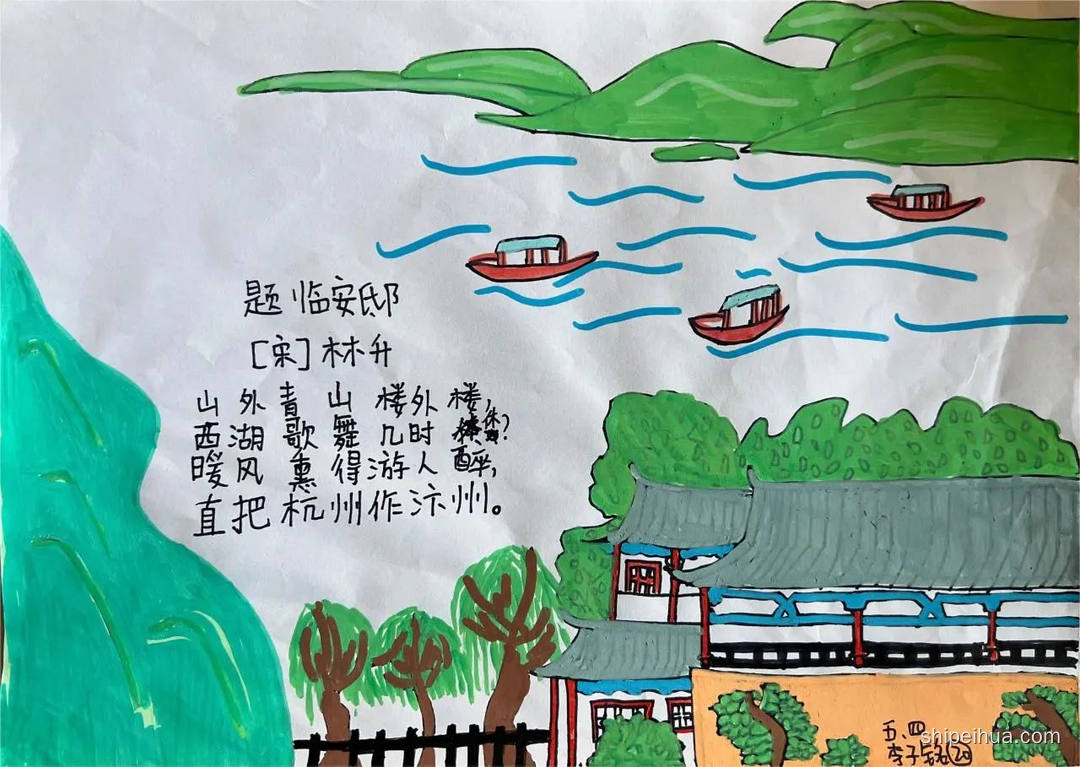 题临安邸
[宋]林升
山外青山楼外楼,
西湖歌舞几时休?
暖风熏得游人醉,
直把杭州作汴州。
五、四
李子铭20
shipeihua.com